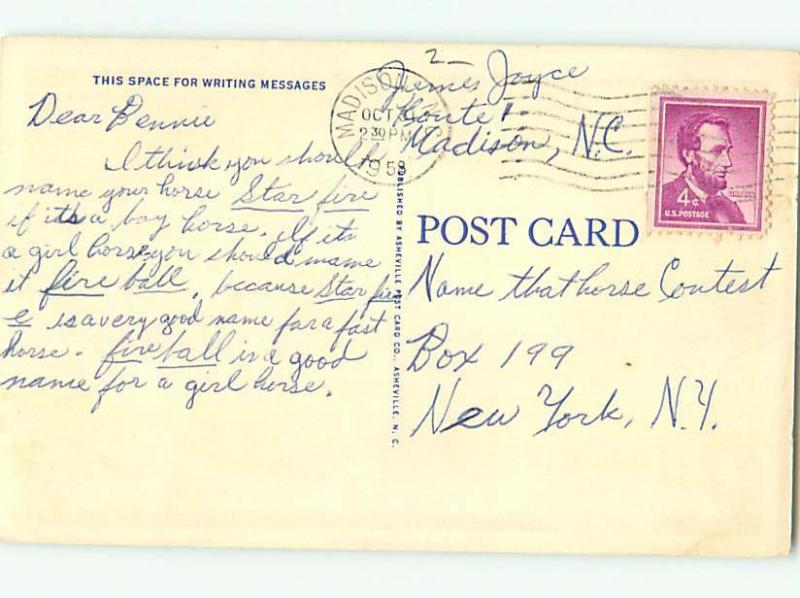 THIS SPACE FOR WRITING MESSAGES
Dear Bennie
I think you should
name your horse Star fire
if its a boy horse. If its
a girl horse you should name
it fire ball, because Star fir
e is a very good name for a fast
horse. fire ball is a good
name for a girl horse.
PUBLISHED BY ASHEVILLE POST CARD CO., ASHEVILLE, N. C.
2
James Joyce
Route 1
Madison, N.C.
MADISON
OCT
2 30 PM
1958
4¢
LINCOLN
U.S. POSTAGE
POST CARD
Name that horse Contest
Box 199
New York, N.Y.